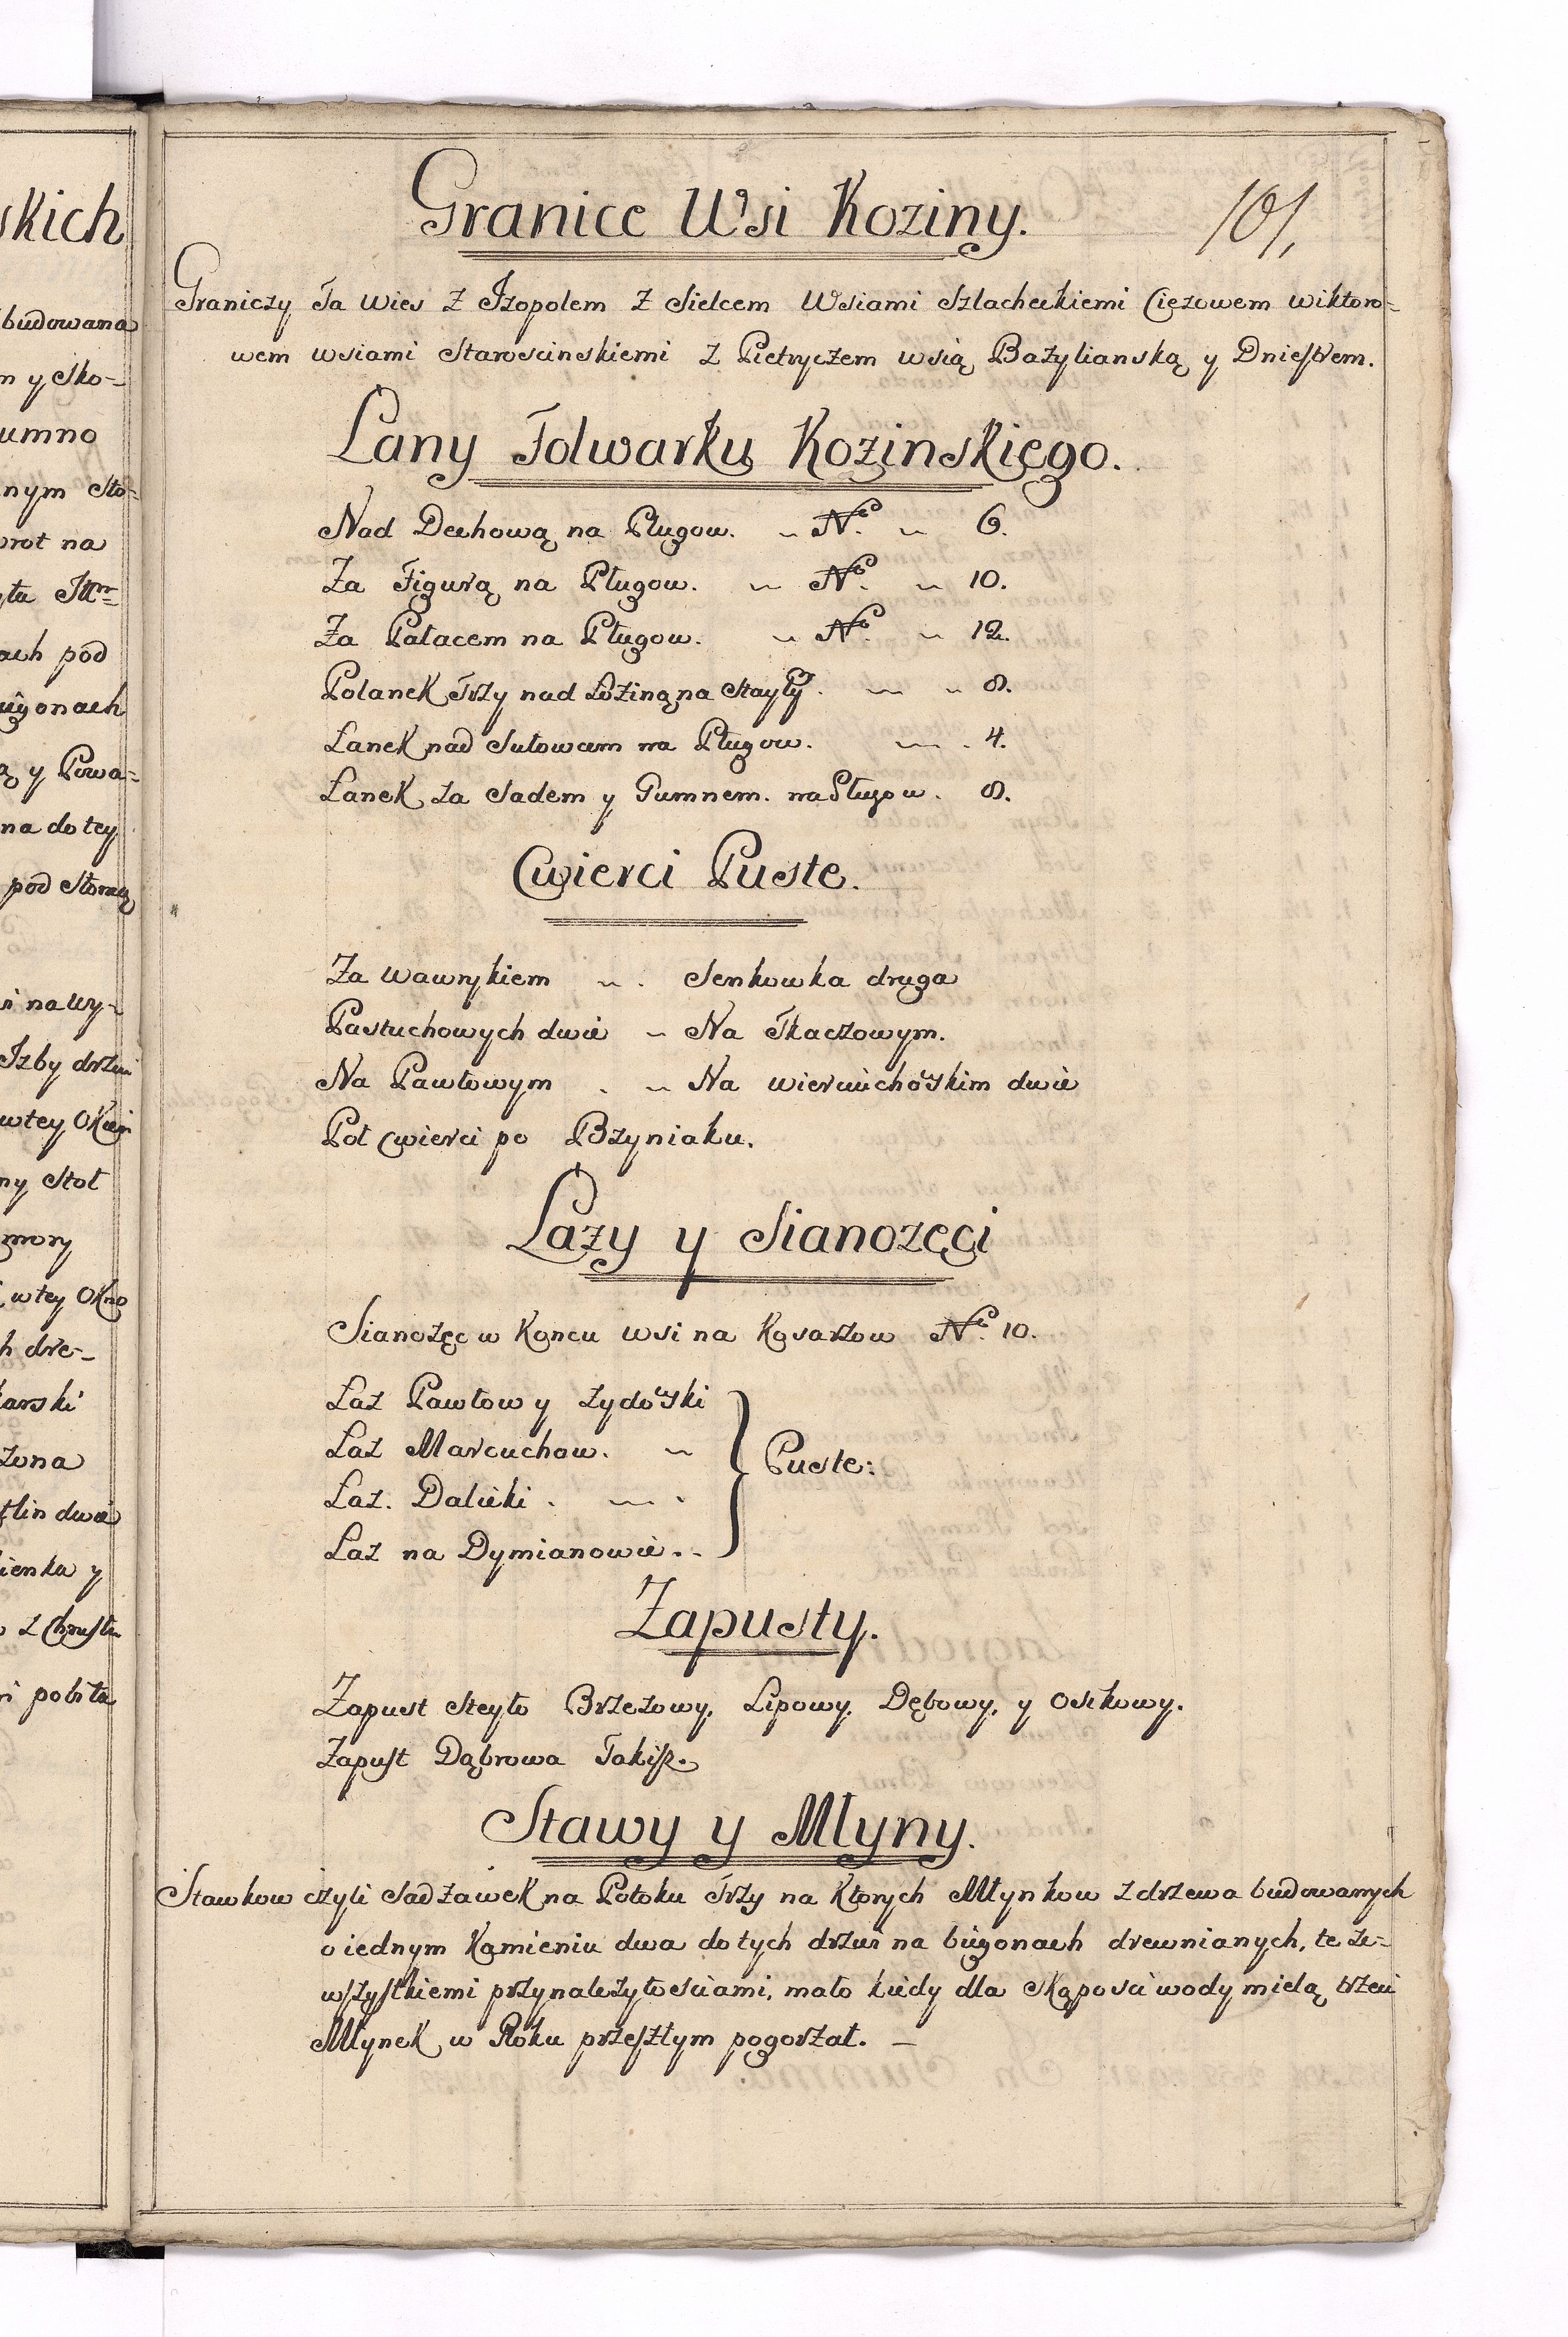 skich
budowana
m y sko=
umno
nym sto=
wrot na
ach pod
bigonach
ą y Powa=
na do tey
pod Stoma
i na wy=
Izby drzwi
w tey Okien
ny Stoł
w tey Okno
h dre=
karski
żona
flin dwie
ienka y
z Chrustu
i pobita
Granice Wsi Koziny.
101,
Graniczy Ta Wies z Izopolem z Sielcem Wsiami Szlacheckiemi Ciężowem Wiktoro=
wem wsiami Staroscinskiemi z Pietryczem wsią Bazylianską y Dniestrem.
Lany Folwarku Kozinskiego.
Nad Dechową na Pługow. N.º 6.
Za Figurą na Pługow. N.º 10.
Za Pałacem na Pługow. N.º 12.
Polanek Trzy nad Łoziną na Stayty. 8.
Lanek nad Sutowcem na Pługow. 4.
Lanek za Sadem y Gumnem. na Pługow. 8.
Cwierci Puste.
Za Wawrykiem Senkowka druga
Pastuchowych dwie Na Tkaczowym.
Na Pawłowym Na Wierciuchowskim dwie
Poł Cwierci po Bzyniaku.
Lazy y Sianozęci
Sianozęc w Koncu wsi na Kosarzow N.º 10.
Laz Pawłow y zydowski
Laz Marcuchow.
Laz. Dalicki.
Laz na Dymianowie..
Puste:
Zapusty.
Zapust Steyto Brzezowy, Lipowy, Dębowy, y Osikowy.
Zapust Dąbrowa Takiż.
Stawy y Młyny.
Stawkow czyli Sadzawek na Potoku Trzy na Ktorych Młynkow z drzewa budowanych
o iednym Kamieniu dwa do tych drzwi na bigonach drewnianych, te ze=
wszystkiemi przynależytosciami, mało kiedy dla Skąposci wody mielą trzeci
Młynek w Roku przeszłym pogorzał. —